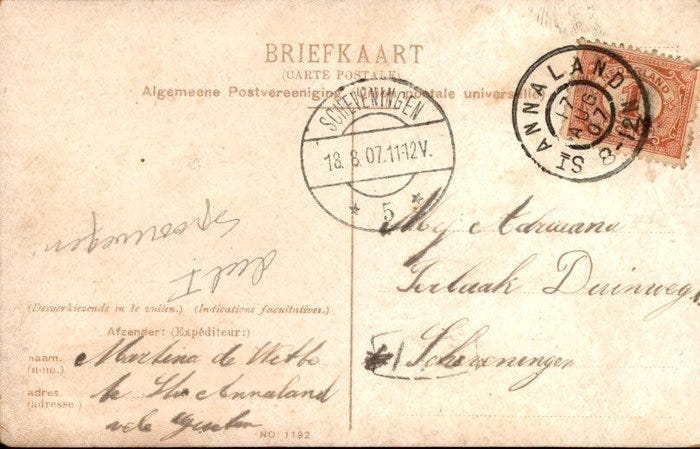 BRIEFKAART
(CARTE POSTALE)
Algemeene Postvereeniging (Union postale universelle)
SCHEVENINGEN
18.8.07.11-12V.
* 5 *
ST ANNALAND
17 AUG 07
8-12N
Mej Adriana
Terlaak Duinweg
Scheveningen
Spoorwegen
deel I
(Desverkiezende in te vullen.) (Indications facultatives.)
Afzender: (Expéditeur:)
naam. Martina de Witte
(nom.)
adres. te St Annaland
(adresse)
vele
NO. 1192